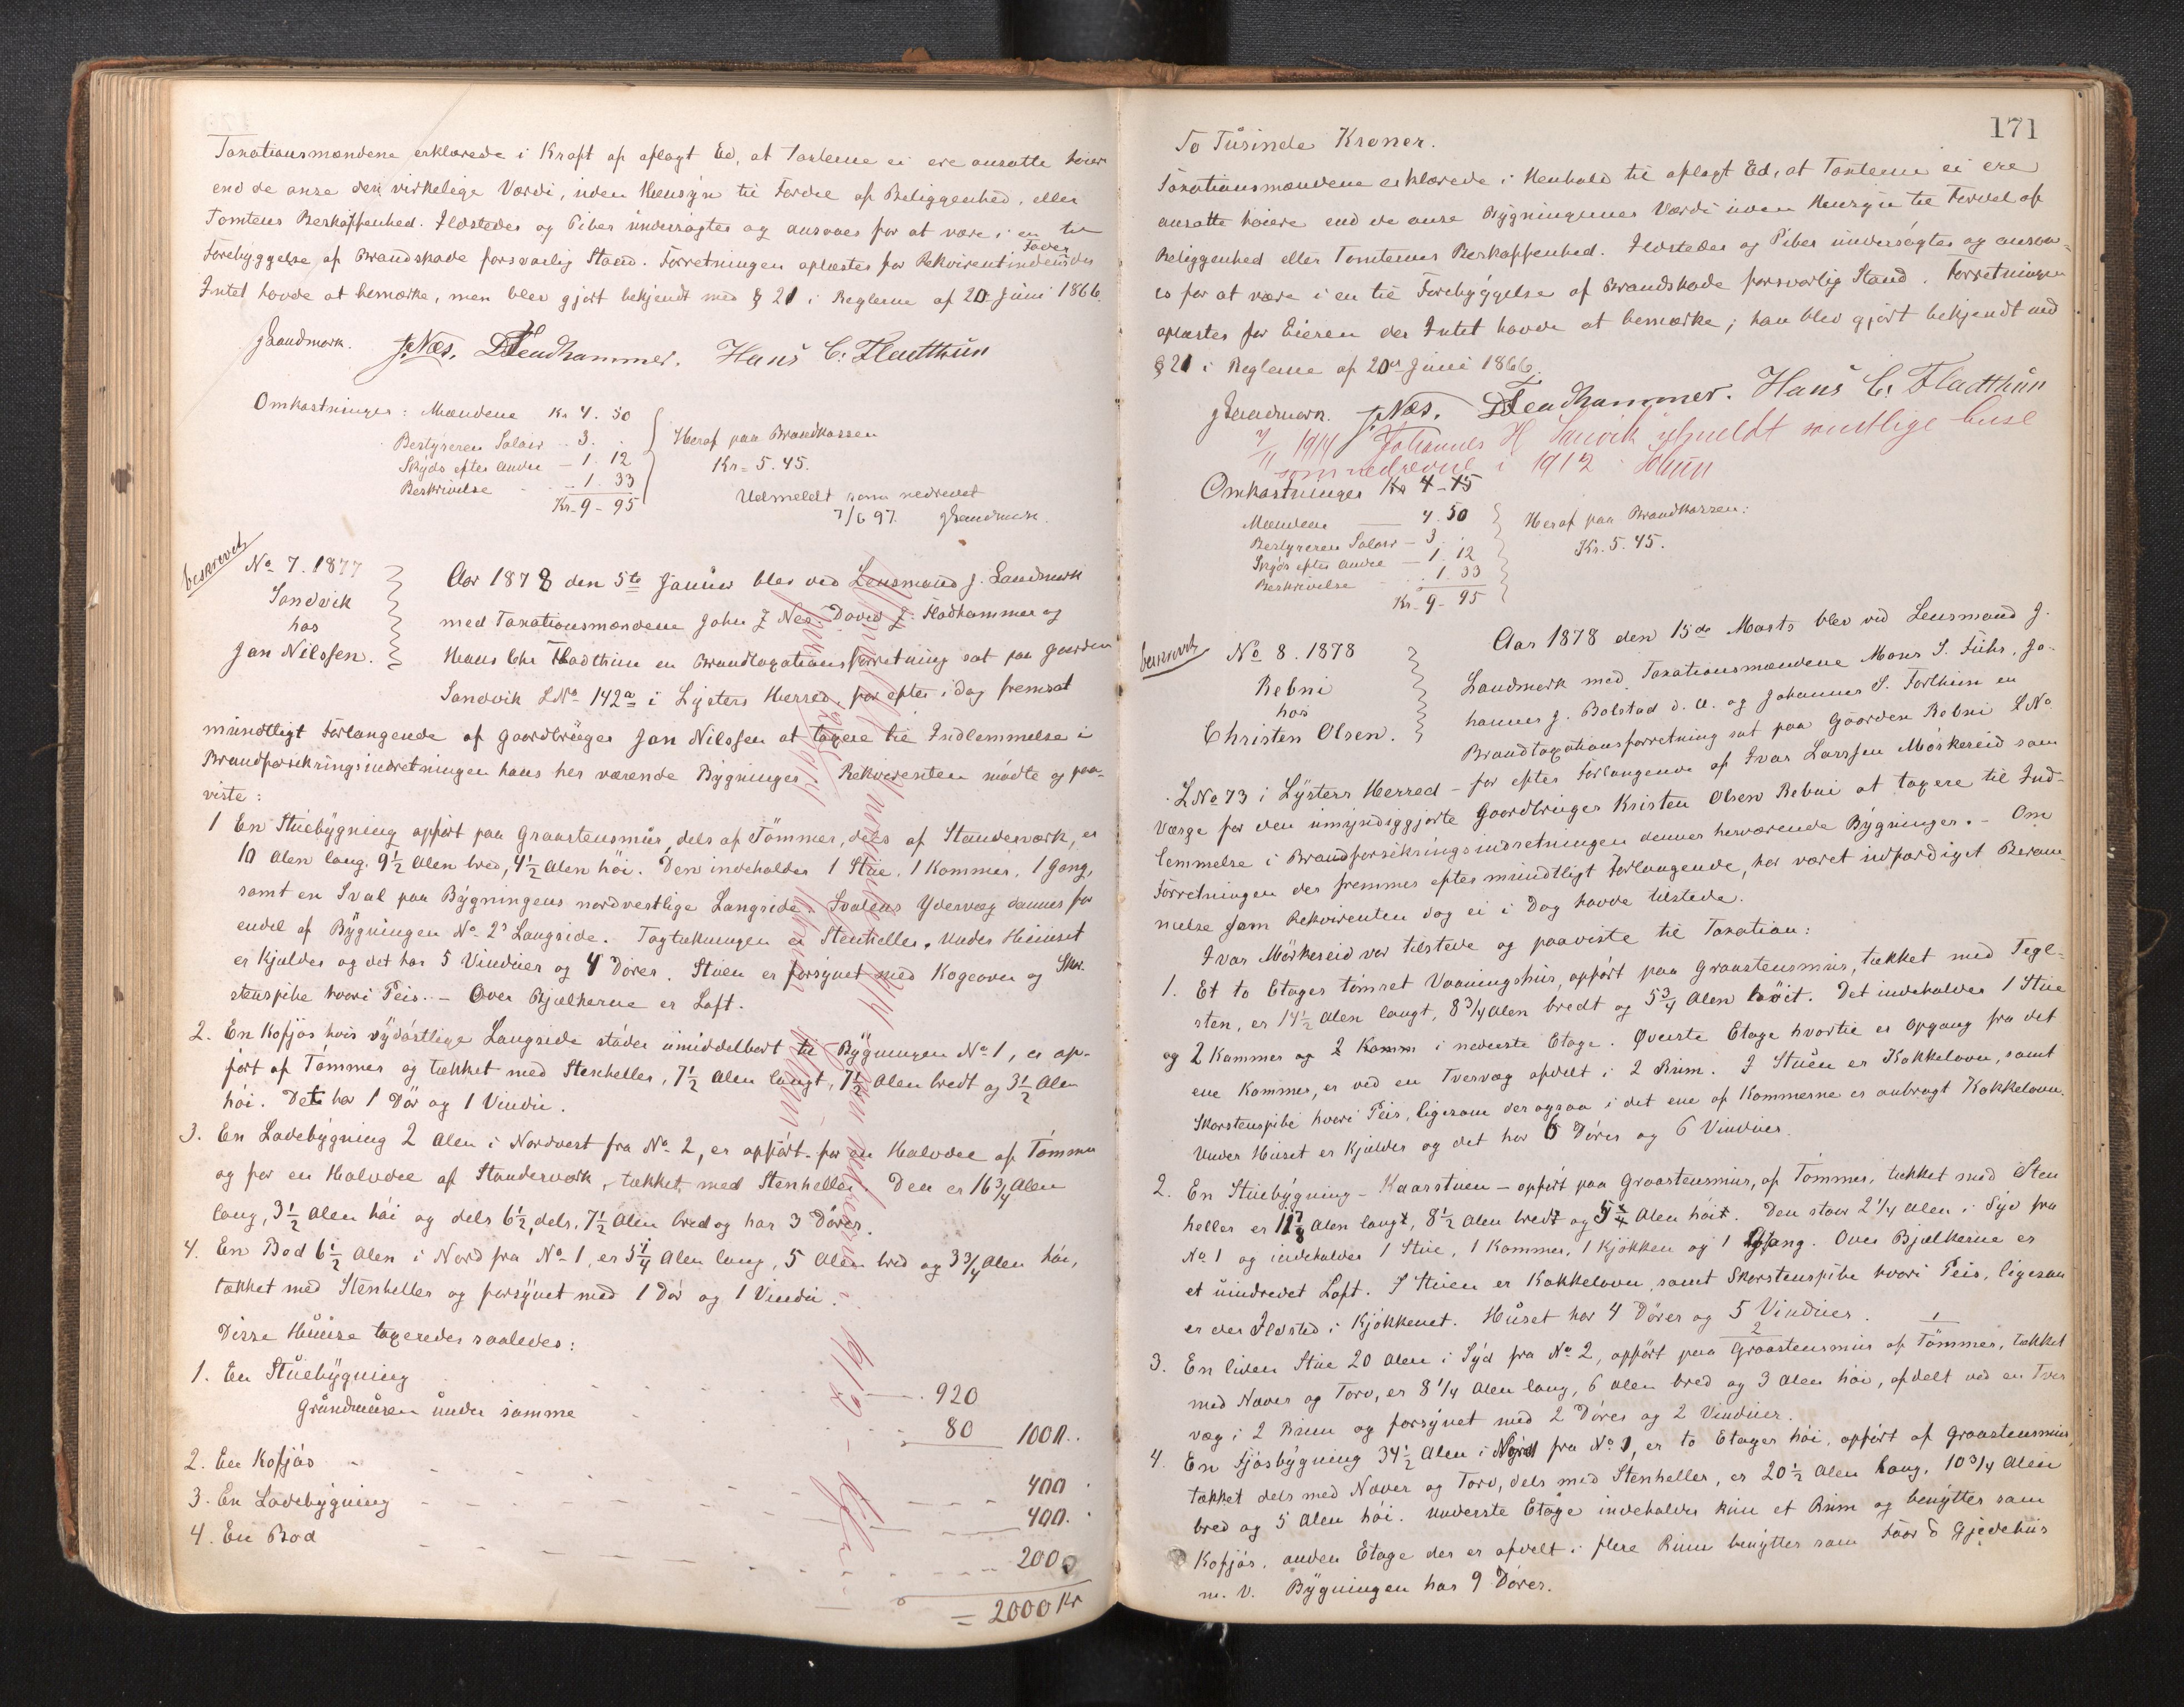 Taxationsmændene erklærede i Kraft af aflagt Ed, at Taxterne ei ere ansatte høiere
end de anse den virkelige Værdi, uden Hensyn til Fordel af Beliggenhed, eller
Tomtens Beskaffenhed. Ildsteder og Piber undersøgtes og ansaaes for at være i en til
Forebyggelse af Brandskade forsvarlig Stand. Forretningen oplæstes for Rekvirentinden der
Intet havde at bemærke, men blev gjort bekjendt med § 21 i Reglerne af 20 Juni 1866.
J Landmark. J. Næs. D Fladhammer. Hans C. Fladthun
Omkostninger: Mændene Kr 4. 50
Bestyreren Salær .. 3. .
Skyds efter Andre — 1. 12
Beskrivelse .. 1. 33
Kr. 9 - 95
Heraf paa Brandkassen
Kr = 5. 45.
Udmeldt som nedrevet
7/6 97. J Landmark.
beskrevet
No 7. 1877
Sandvik
hos
Jan Nilssen.
Aar 1878 den 5te Januar blev ved Lensmand J. Landmark
med Taxationsmændene John J Næs David J. Fladhammer og
Hans Chr Fladthun en Brandtaxationsforretning sat paa Gaarden
Sandvik LNo 142a i Lysters Herred, for efter idag fremsat
mundtligt Forlangende af Gaardbruger Jan Nilssen at taxere til Indlemmelse i
Brandforsikringsindretningen hans her værende Bygninger. Rekvirenten mødte og paa-
viste:
1 En Stuebygning opført paa Graastensmur, dels af Tømmer, dels af Standerværk, er
10 Alen lang, 9½ Alen bred, 4½ Alen høi. Den indeholder 1 Stue, 1 Kammer, 1 Gang,
samt en Sval paa Bygningens nordvestlige Langside. Svalens Ydervæg dannes for
endel af Bygningen No 2s Langside. Tagtækningen er Stenheller. Under Huuset
er Kjælder og det har 5 Vinduer og 4 Dører. Stuen er forsynet med Kogeovn og Skor-
stenspibe hvori Peis. — Over Bjælkerne er Loft.
2. En Kofjøs hvis sydøstlige Langside støder umiddelbart til Bygningen No 1, er op-
ført af Tømmer og tækket med Stenheller, 7½ Alen langt, 7½ Alen bredt og 3½ Alen
høi. Det har 1 Dør og 1 Vindu.
3. En Ladebygning 2 Alen i Nordvest fra No 2, er opført for en Halvdel af Tømmer
og for en Halvdel af Standerværk, tækket med Stenheller. Den er 16¾ Alen
lang, 3½ Alen høi og dels 6½, dels 7½ Alen bred og har 3 Dører.
4. En Bod 6½ Alen i Nord fra No 1, er 5¼ Alen lang, 5 Alen bred og 3¾ Alen høi,
tækket med Stenheller og forsynet med 1 Dør og 1 Vindu.
Disse Huuse taxeredes saaledes:
1. En Stuebygning 920
Grundmuren under samme 80 1000.
2. En Kofjøs 400
3. En Ladebygning 400.
4. En Bod 200
= 2000 Kr
171
To Tusinde Kroner.
Taxationsmændene erklærede i Henhold til aflagt Ed, at Taxterne ei ere
ansatte høiere end de anse Bygningernes Værdi uden Hensyn til Fordel af
Beliggenhed eller Tomternes Beskaffenhed. Ildsteder og Piber undersøgtes og ansaa-
es for at være i en til Forebyggelse af Brandskade forsvarlig Stand. Forretningen
oplæstes for Eieren der Intet havde at bemærke; han blev gjort bekjendt med
§ 21 i Reglerne af 20de Juni 1866.
J Landmark. J. Næs. D Fladhammer. Hans C. Fladthun
7/11 1914 Johannes H Sanvik utmeldt samtlige huse
som nedrevne i 1912
Omkostninger Kr 4-45
Mændene — 4. 50
Bestyreren Salær — 3. .
Skyds efter Andre — 1. 12
Beskrivelse .. 1. 33
Kr. 9 - 95
Heraf paa Brandkassen:
Kr. 5. 45.
beskrevet
No 8. 1878
Rebni
hos
Christen Olsen.
Aar 1878 den 15de Marts blev ved Lensmand J.
Landmark med Taxationsmændene Mons S. Fuhr, Jo-
hannes J. Bolstad d. æ. og Johannes S. Forthun en
Brandtaxationsforretning sat paa Gaarden Rebni LNo
LNo 73 i Lysters Herred — for efter Forlangende af Ivar Larssen Mørkereid som
Værge for den umyndiggjorte Gaardbruger Kristen Olsen Rebni at taxere til Ind-
lemmelse i Brandforsikringsindretningen dennes herværende Bygninger. — Om
Forretningen der fremmes efter mundtligt Forlangende, har været indfærdiget Beram-
melse som Rekvirenten dog ei i Dag havde tilstede.
Ivar Mørkereid var tilstede og paaviste til Taxation:
1. Et to Etages tømret Vaaningshus, opført paa Graastensmur, tækket med Tegl-
sten, er 14½ Alen langt, 8¾ Alen bredt og 5¾ Alen høit. Det indeholder 1 Stue
og 2 Kammer og 2 Kamm i nederste Etage. Øverste Etage hvortil er Opgang fra det
ene Kammer, er ved en Tvervæg afdelt i 2 Rum. I Stuen er Kakkelovn, samt
Skorstenspibe hvori Peis, ligesom der ogsaa i det ene af Kammerne er anbragt Kakkelovn.
Under Huset er Kjælder og det har 6 Dører og 6 Vinduer.
2. En Stuebygning — Kaarstuen — opført paa Graastensmur, af Tømmer, tækket med Sten
heller er 11⅞ Alen langt, 8½ Alen bredt og 5¾ Alen høit. Den staar 2¼ Alen i Syd fra
No 1 og indeholder 1 Stue, 1 Kammer, 1 Kjøkken og 1 Gang. Over Bjælkerne er
et uindredet Loft. I Stuen er Kakkelovn, samt Skorstenspibe hvori Peis, ligesom
er der Ildsted i Kjøkkenet. Huset har 4 Dører og 5 Vinduer.
3. En liden Stue 20 Alen i Syd fra No 2, opført paa Graastensmur af Tømmer, tækket
med Næver og Torv, er 8¼ Alen lang, 6 Alen bred og 3 Alen høi, afdelt ved en Tver
væg i 2 Rum og forsynet med 2 Dører og 2 Vinduer.
4. En Fjøsbygning 34½ Alen i Nord fra No 1, er to Etager høi, opført af Graastensmur,
tækket dels med Næver og Torv, dels med Stenheller, er 20½ Alen lang, 10¾ Alen
bred og 5 Alen høi. Underste Etage indeholder kun et Rum og benyttes som
Kofjøs, anden Etage der er afdelt i flere Rum benyttes som Faar & Gjedehus
m. v. Bygningen har 9 Dører.